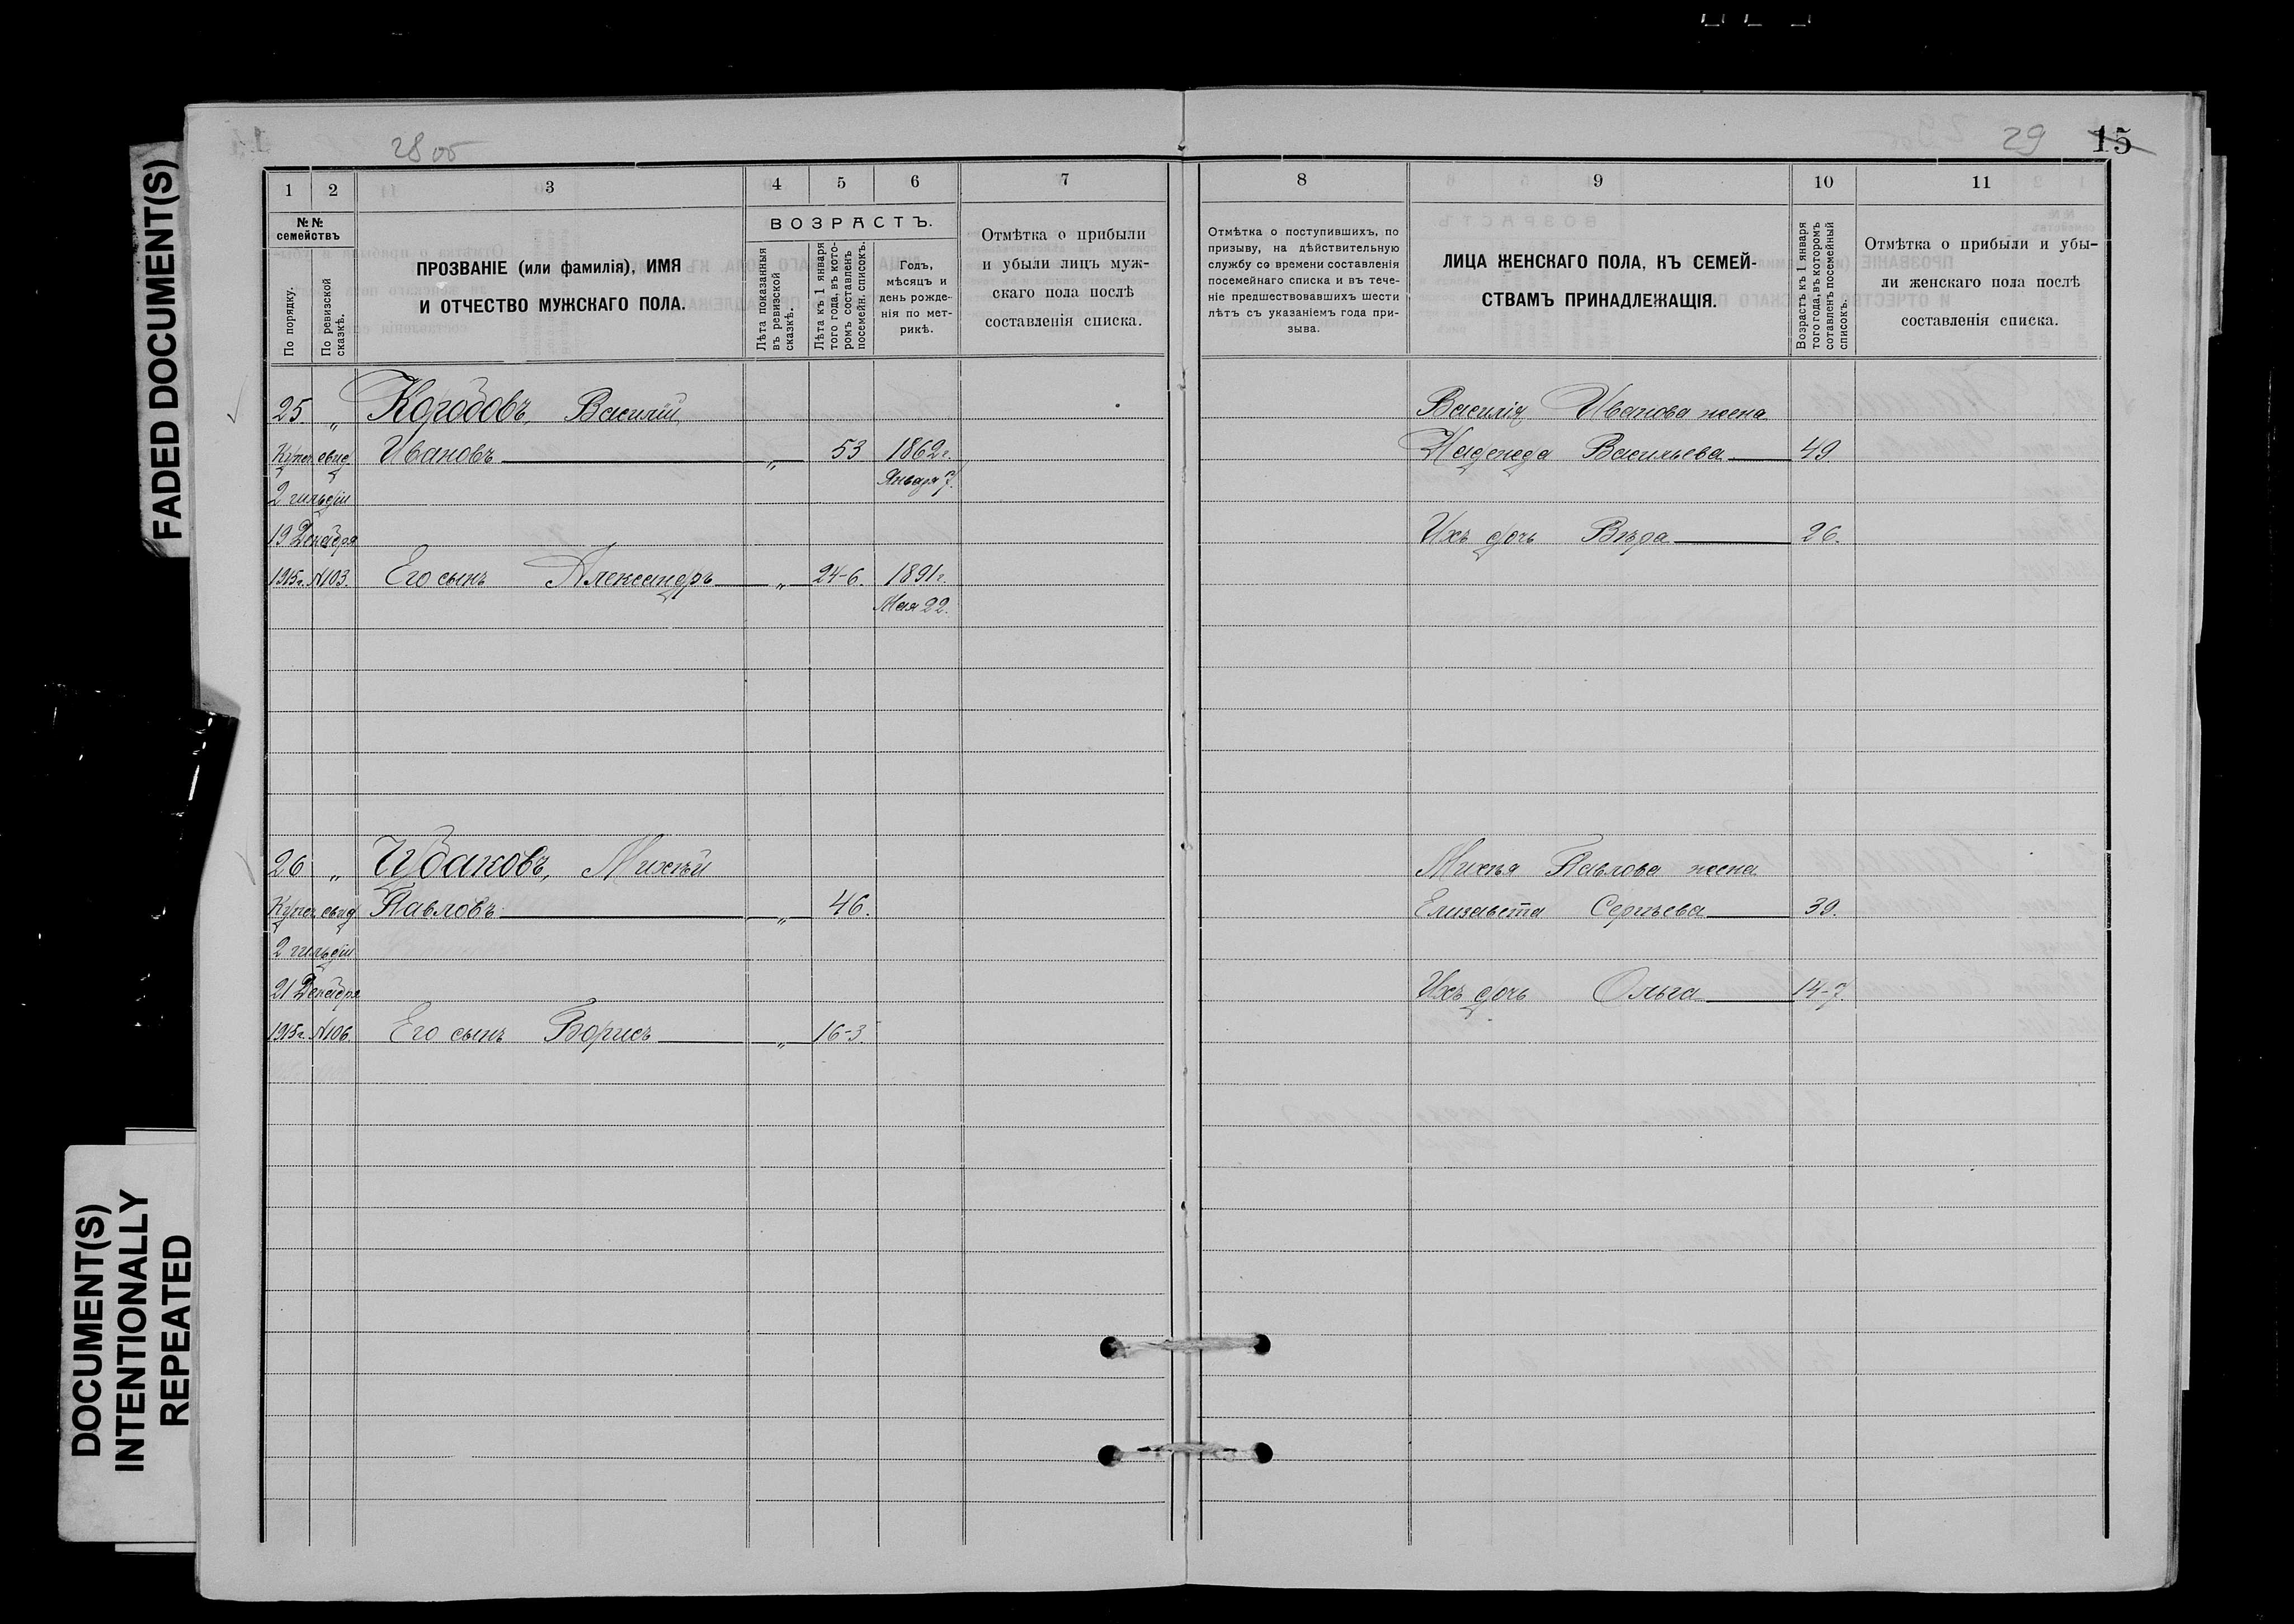 FADED DOCUMENT(S)
DOCUMENT(S)
INTENTIONALLY
REPEATED
28 об
1 2 3 4 5 6 7
№№ семействъ
По порядку.
По ревизской сказкѣ.
ПРОЗВАНІЕ (или фамилія), ИМЯ
И ОТЧЕСТВО МУЖСКАГО ПОЛА.
ВОЗРАСТЪ.
Лѣта показанныя
въ ревизской
сказкѣ.
Лѣта къ 1 января
того года, въ кото-
ромъ составленъ
посемейн. списокъ.
Годъ,
мѣсяцъ и
день рожде-
нія по мет-
рикѣ.
Отмѣтка о прибыли
и убыли лицъ муж-
скаго пола послѣ
составленія списка.
25. „ Коробовъ, Василій
Купеч. свид. Ивановъ „ 53 1862 г.
2 гильдіи Января 7.
19 Декабря
1915 г. N103. Его сынъ Александръ „ 24-6. 1891 г.
Мая 22.
26 „ Чубаковъ, Михѣй
Купеч. свид. Павловъ „ 46.
2 гильдіи
21 Декабря
1915 г. N106. Его сынъ Борисъ „ 16-3.
29 15
8 9 10 11
Отмѣтка о поступившихъ, по
призыву, на дѣйствительную
службу со времени составленія
посемейнаго списка и въ тече-
ніе предшествовавшихъ шести
лѣтъ съ указаніемъ года при-
зыва.
ЛИЦА ЖЕНСКАГО ПОЛА, КЪ СЕМЕЙ-
СТВАМЪ ПРИНАДЛЕЖАЩІЯ.
Возрастъ къ 1 января
того года, въ которомъ
составленъ посемейный
списокъ.
Отмѣтка о прибыли и убы-
ли женскаго пола послѣ
составленія списка.
Василія Иванова жена
Надежда Васильева 49.
Ихъ дочь Вѣра 26.
Михѣя Павлова жена
Елизавета Сергѣева 39.
Ихъ дочь Ольга 14-7.